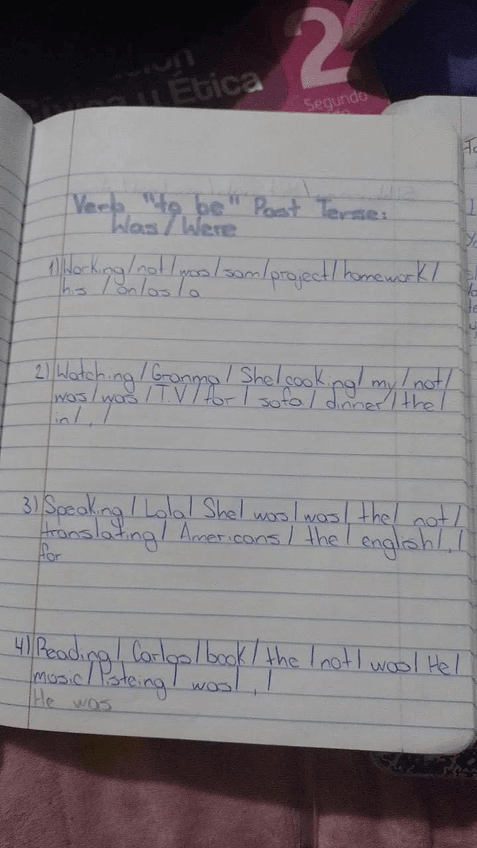 2
Segundo
y Ética
Verb "to be" Past Tense:
Was/Were
1) Working/not/was/sam/project/homework/
his/on/as/a
2) Watching/Granma/She/cooking/my/not/
was/was/T.V/for/sofa/dinner/the/
in/,/
3) Speaking/Lola/She/was/was/the/not/
translating/Americans/the/english/,/
for
4) Reading/Carlos/book/the/not/was/He/
music/listeing/was/,/
He was